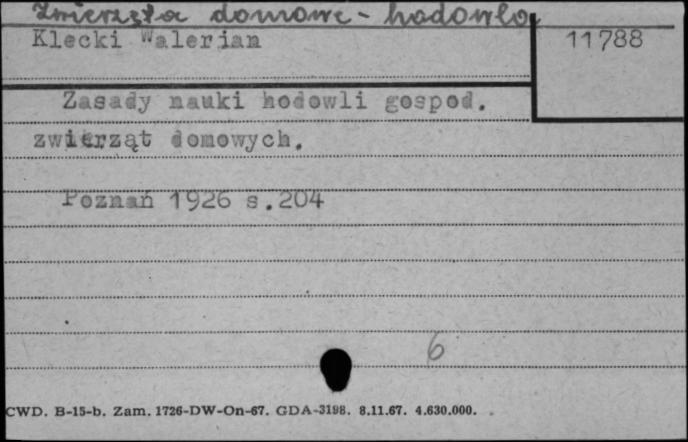 Zwierzęta domowe - hodowla
Klecki Walerian
11788
Zasady nauki hodowli gospod.
zwierząt domowych.
Poznań 1926 s.204
6
CWD. B-15-b. Zam. 1726-DW-On-67. GDA-3198. 8.11.67. 4.630.000.